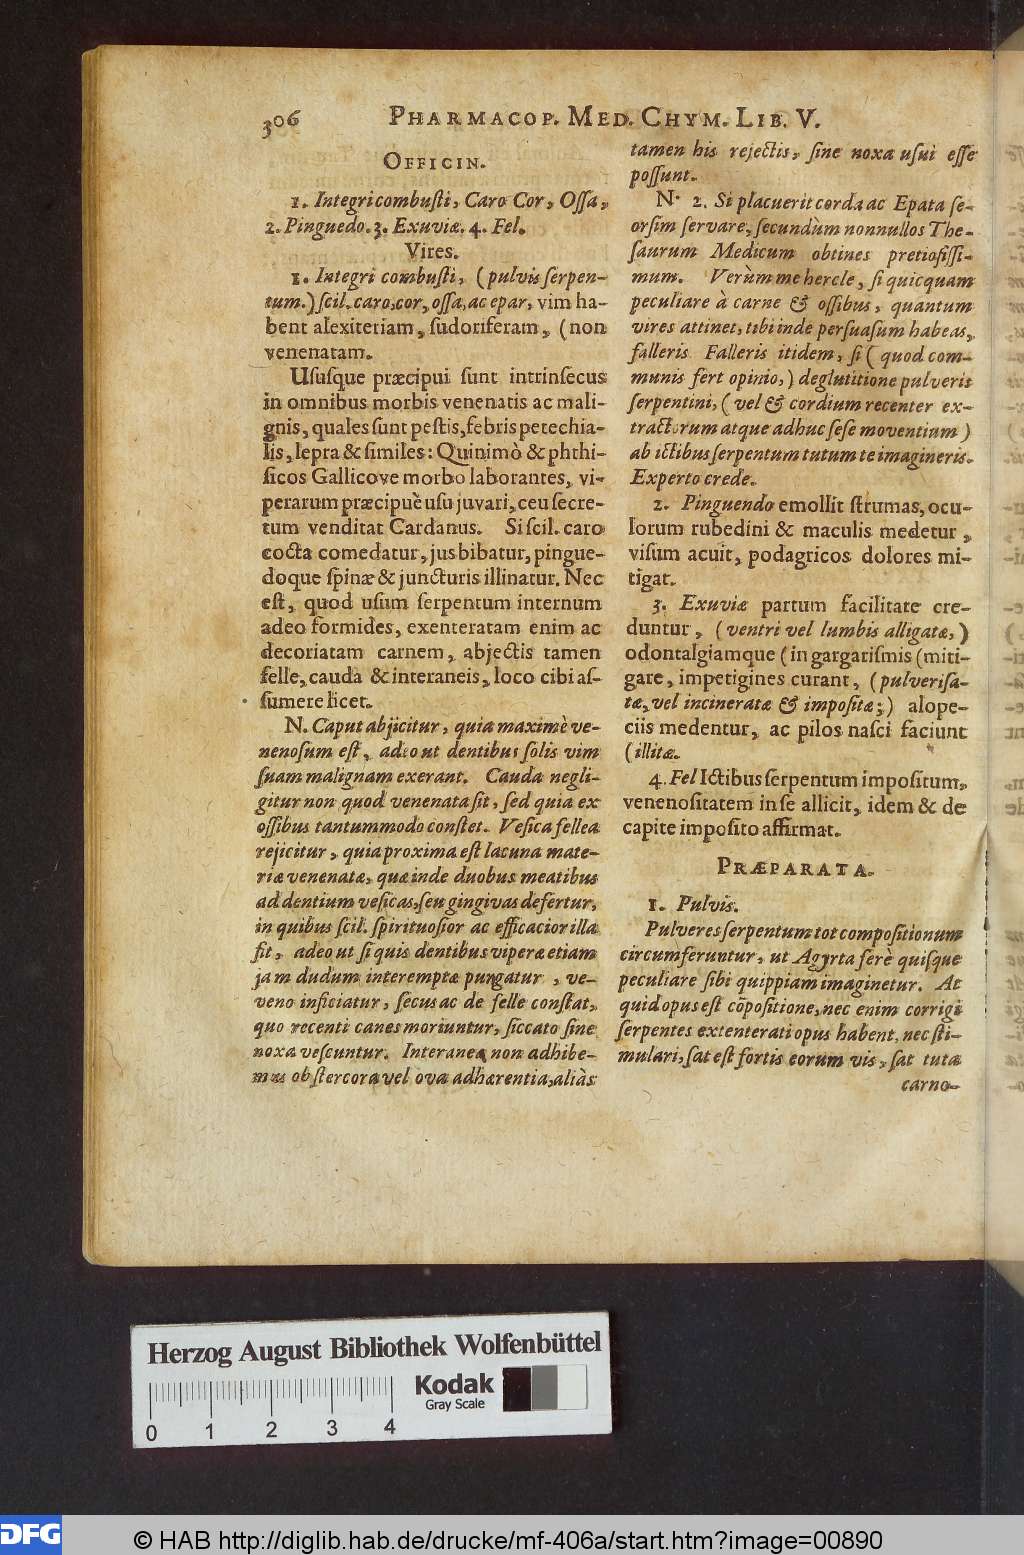 306 PHARMACOP. MED. CHYM. LIB. V.
OFFICIN.
1. Integri combusti, Caro Cor, Ossa,
2. Pinguedo. 3. Exuviæ. 4. Fel.
Vires.
1. Integri combusti, (pulvis serpen-
tum.) scil. caro, cor, ossa, ac epar, vim ha-
bent alexiteriam, sudoriferam, (non
venenatam.
Ususque præcipui sunt intrinsecus
in omnibus morbis venenatis ac mali-
gnis, quales sunt pestis, febris petechia-
lis, lepra & similes: Quinimò & phthi-
sicos Gallicove morbo laborantes, vi-
perarum præcipuè usu juvari, ceu secre-
tum venditat Cardanus. Si scil. caro
cocta comedatur, jus bibatur, pingue-
doque spinæ & juncturis illinatur. Nec
est, quod usum serpentum internum
adeo formides, exenteratam enim ac
decoriatam carnem, abjectis tamen
felle, cauda & interaneis, loco cibi as-
sumere licet.
N. Caput abjicitur, quia maximè ve-
nenosum est, adeo ut dentibus solis vim
suam malignam exerant. Cauda negli-
gitur non quod venenata sit, sed quia ex
ossibus tantummodo constet. Vesica fellea
rejicitur, quia proxima est lacuna mate-
riæ venenatæ, quæ inde duobus meatibus
ad dentium vesicas, seu gingivas defertur,
in quibus scil. spirituosior ac efficacior illa
fit, adeo ut si quis dentibus viperæ etiam
jam dudum interemptæ pungatur, ve-
veno inficiatur, secus ac de felle constat,
quo recenti canes moriuntur, siccato sine
noxa vescuntur. Interanea non adhibe-
mus ob stercora vel ova adhærentia, aliàs
tamen his rejectis, sine noxa usui esse
possunt.
N. 2. Si placuerit corda ac Epata se-
orsim servare, secundùm nonnullos The-
saurum Medicum obtines pretiosissi-
mum. Verùm me hercle, si quicquam
peculiare à carne & ossibus, quantum
vires attinet, tibi inde persuasum habeas,
falleris Falleris itidem, si (quod com-
munis fert opinio,) deglutitione pulveris
serpentini, (vel & cordium recenter ex-
tractorum atque adhuc sese moventium)
ab ictibus serpentum tutum te imagineris.
Experto crede.
2. Pinguendo emollit strumas, ocu-
lorum rubedini & maculis medetur,
visum acuit, podagricos dolores mi-
tigat.
3. Exuviæ partum facilitate cre-
duntur, (ventri vel lumbis alligatæ,)
odontalgiamque (in gargarismis (miti-
gare, impetigines curant, (pulverisa-
tæ, vel incineratæ & impositæ;) alope-
ciis medentur, ac pilos nasci faciunt
(illitæ.
4. Fel Ictibus serpentum impositum,
venenositatem in se allicit, idem & de
capite imposito affirmat.
PRÆPARATA.
1. Pulvis.
Pulveres serpentum tot compositionum
circumferuntur, ut Agyrta ferè quisque
peculiare sibi quippiam imaginetur. At
quid opus est cōpositione, nec enim corrigi
serpentes extenterati opus habent, nec sti-
mulari, sat est fortis eorum vis, sat tuta
carno-
Herzog August Bibliothek Wolfenbüttel
0 1 2 3 4
Kodak
Gray Scale
DFG © HAB http://diglib.hab.de/drucke/mf-406a/start.htm?image=00890